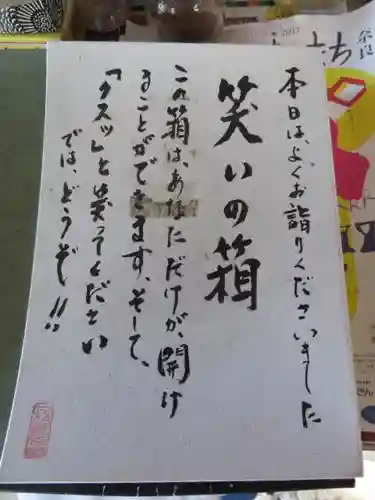 本日は、よくお詣りくださいました
笑いの箱
この箱は、あなただけが、開け
ることができます、そして、
「クスッ」と笑ってください
では、どうぞ!!
2017
奈良